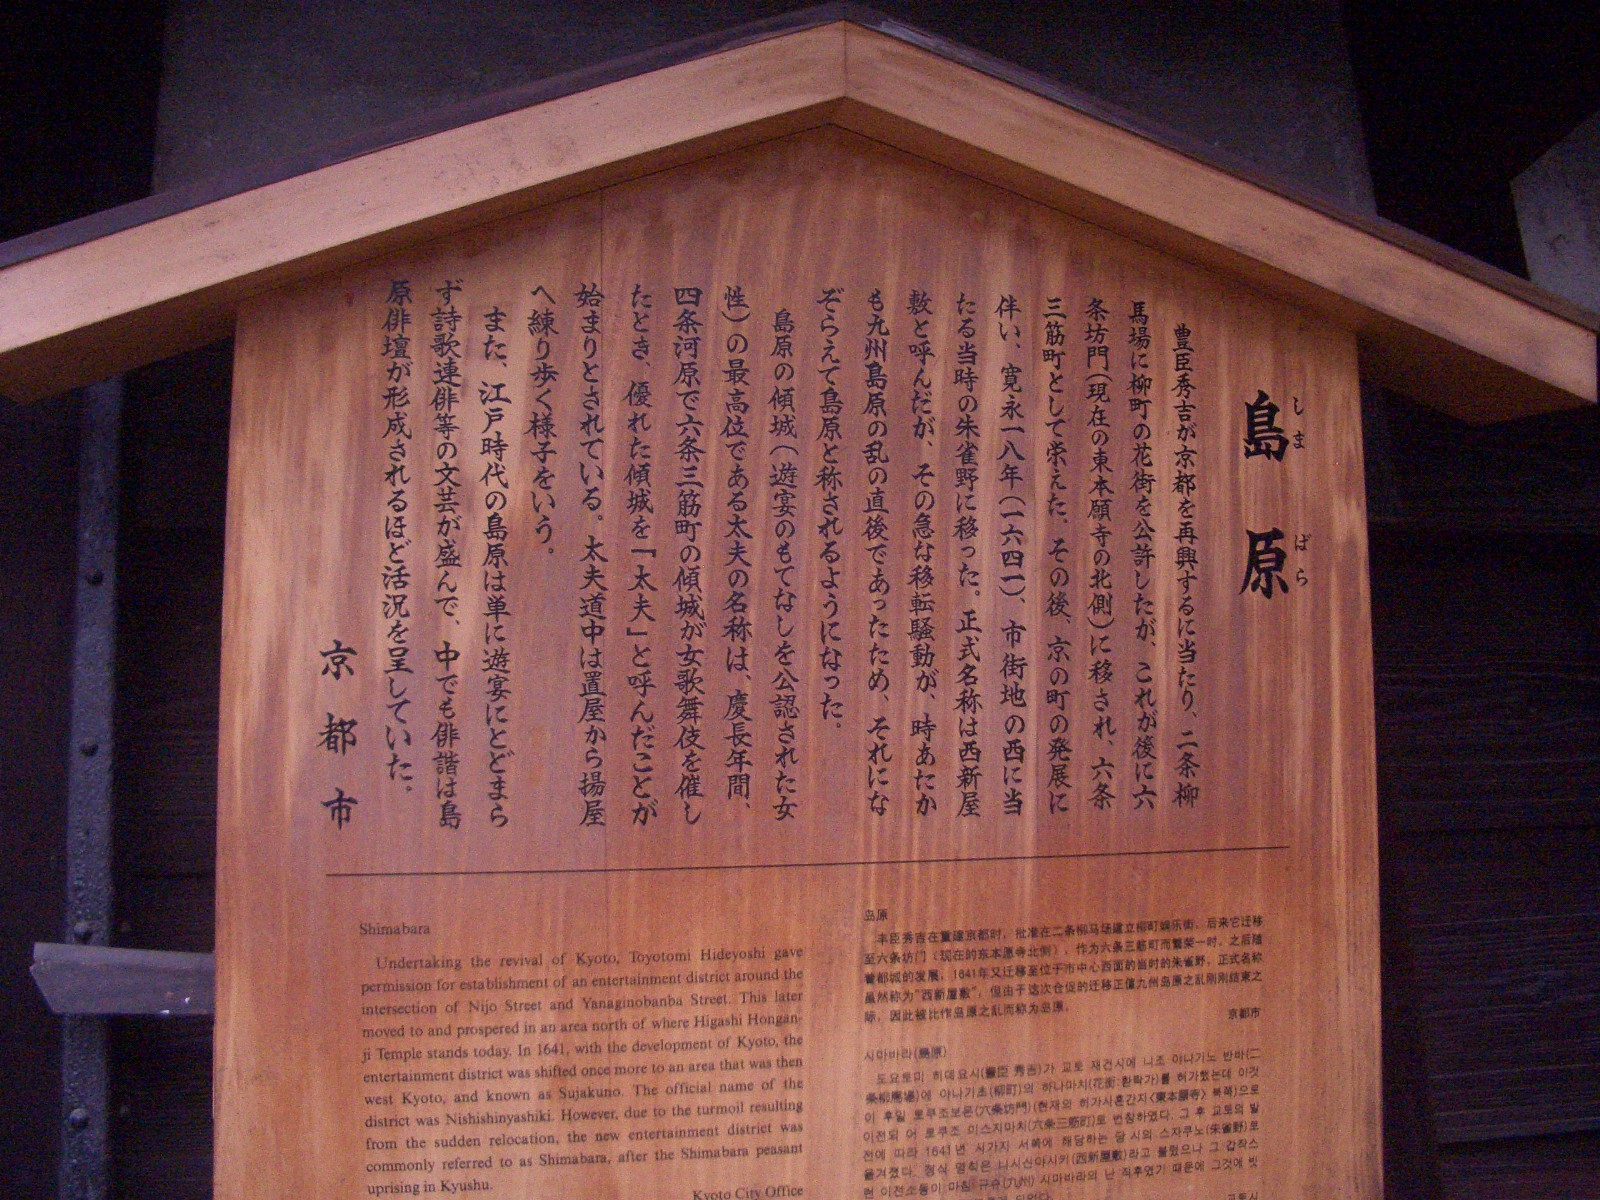 島原
しま ばら
豊臣秀吉が京都を再興するに当たり、二条柳
馬場に柳町の花街を公許したが、これが後に六
条坊門(現在の東本願寺の北側)に移され、六条
三筋町として栄えた。その後、京の町の発展に
伴い、寛永一八年(一六四一)、市街地の西に当
たる当時の朱雀野に移った。正式名称は西新屋
敷と呼んだが、その急な移転騒動が、時あたか
も九州島原の乱の直後であったため、それにな
ぞらえて島原と称されるようになった。
島原の傾城(遊宴のもてなしを公認された女
性)の最高位である太夫の名称は、慶長年間、
四条河原で六条三筋町の傾城が女歌舞伎を催し
たとき、優れた傾城を「太夫」と呼んだことが
始まりとされている。太夫道中は置屋から揚屋
へ練り歩く様子をいう。
また、江戸時代の島原は単に遊宴にとどまら
ず詩歌連俳等の文芸が盛んで、中でも俳諧は島
原俳壇が形成されるほど活況を呈していた。
京都市
Shimabara
Undertaking the revival of Kyoto, Toyotomi Hideyoshi gave
permission for establishment of an entertainment district around the
intersection of Nijo Street and Yanaginobanba Street. This later
moved to and prospered in an area north of where Higashi Hongan-
ji Temple stands today. In 1641, with the development of Kyoto, the
entertainment district was shifted once more to an area that was then
west Kyoto, and known as Sujakuno. The official name of the
district was Nishishinyashiki. However, due to the turmoil resulting
from the sudden relocation, the new entertainment district was
commonly referred to as Shimabara, after the Shimabara peasant
uprising in Kyushu.
Kyoto City Office
岛原
丰臣秀吉在重建京都时，批准在二条柳马场建立柳町娱乐街，后来它迁移
至六条坊门（现在的东本愿寺北侧），作为六条三筋町而繁荣一时，之后随
着都城的发展，1641年又迁移至位于市中心西面的当时的朱雀野，正式名称
虽然称为“西新屋敷”，但由于这次仓促的迁移正值九州岛原之乱刚刚结束之
际，因此被比作岛原之乱而称为岛原。
京都市
시마바라(島原)
도요토미 히데요시(豊臣 秀吉)가 교토 재건시에 니조 야나기노 반바(二
条柳馬場)에 야나기초(柳町)의 하나마치(花街:환락가)를 허가했는데 이것
이 후일 로쿠조보몬(六条坊門)(현재의 히가시혼간지<東本願寺> 북쪽)으로
이전되 어 로쿠조 미스지마치(六条三筋町)로 번창하였다. 그 후 교토의 발
전에 따라 1641년 시가지 서쪽에 해당하는 당 시의 스자쿠노(朱雀野)로
옮겨졌다. 정식 명칭은 니시신야시키(西新屋敷)라고 불렀으나 그 갑작스
런 이전소동이 마침 규슈(九州) 시마바라의 난 직후였기 때문에 그것에 빗